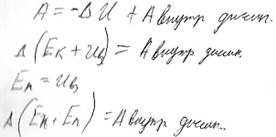 A = -ΔU + A внутр дисип.
Δ(Eк + Uвз) = A внутр дисип.
Eп = Uвз
Δ(Eк + Eп) = A внутр дисип..